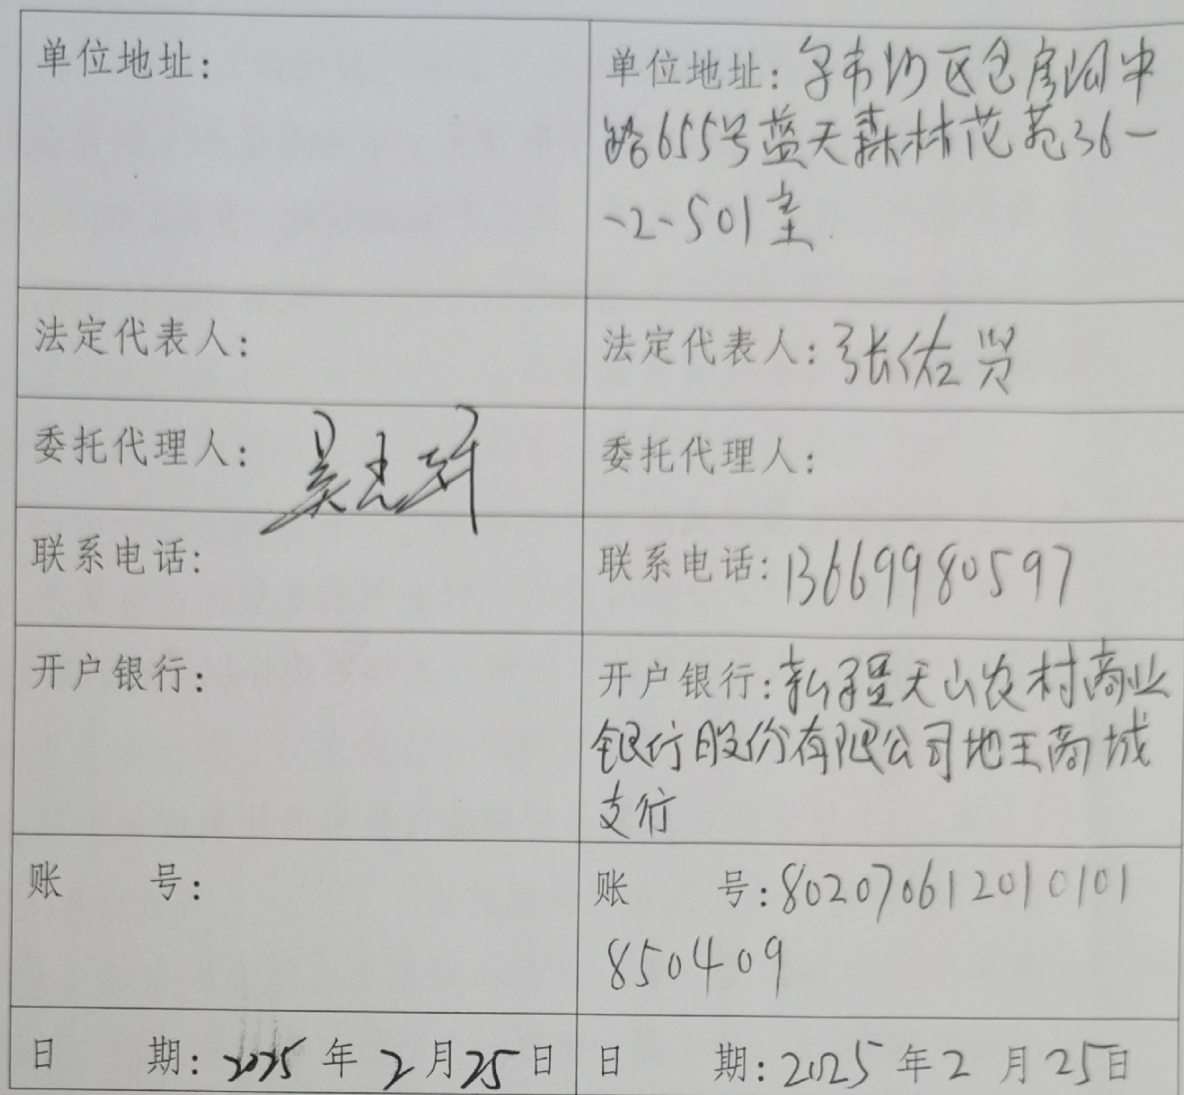 单位地址:
单位地址:乌市沙区仓房沟中
路655号蓝天森林花苑36-
-2-501室
法定代表人:
法定代表人:张佑贤
委托代理人:吴志
委托代理人:
联系电话:
联系电话:13669980597
开户银行:
开户银行:新疆天山农村商业
银行股份有限公司地王商城
支行
账 号:
账 号:802070612010101
850409
日 期:2025年2月25日
日 期:2025年2月25日